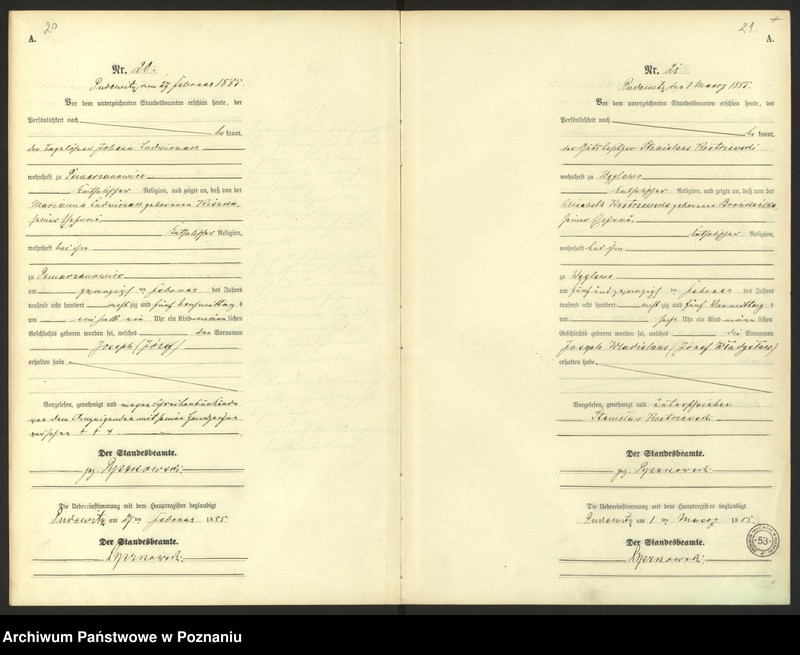 20
A.
Nr. 20.
Pudewitz, am 27 Februar 1885.
Vor dem unterzeichneten Standesbeamten erschien heute, der
Persönlichkeit nach
be kannt,
der Tagelöhner Johann Ludwiczak
wohnhaft zu Pomarzanowice
katholischer Religion, und zeigte an, daß von der
Marianna Ludwiczak geborenen
seiner Ehefrau
katholischer Religion,
wohnhaft bei ihm
zu Pomarzanowice
am zwanzigsten Februar des Jahres
tausend acht hundert achtzig und fünf Nachmittag s
um Uhr ein Kind männlichen
Geschlechts geboren worden sei, welches den Vornamen
Joseph (Józef)
erhalten habe
Vorgelesen, genehmigt und wegen Schreibensunkunde
von dem Anzeigenden mit seinem Handzeichen
versehen + + +
Der Standesbeamte.
gez.
Die Uebereinstimmung mit dem Hauptregister beglaubigt
Pudewitz am 27 ten Februar 1885.
Der Standesbeamte.
21
A.
Nr. 21
Pudewitz, den 1 Maerz 1885.
Vor dem unterzeichneten Standesbeamten erschien heute, der
Persönlichkeit nach
be kannt,
der Gutsbesitzer Stanislaus Kostrzewski
wohnhaft zu Węglewo
katholischer Religion, und zeigte an, daß von der
Kostrzewska geborenen
seiner Ehefrau
katholischer Religion,
wohnhaft bei ihm
zu Węglewo
am fünf und zwanzigsten Februar des Jahres
tausend acht hundert achtzig und fünf Vormittag s
um sechs Uhr ein Kind männlichen
Geschlechts geboren worden sei, welches die Vornamen
Joseph Wladislaus (Józef Władysław)
erhalten habe
Vorgelesen, genehmigt und unterschrieben
Stanislaus Kostrzewski
Der Standesbeamte.
gez.
Die Uebereinstimmung mit dem Hauptregister beglaubigt
Pudewitz am 1 ten Maerz 1885.
Der Standesbeamte.
53
Archiwum Państwowe w Poznaniu